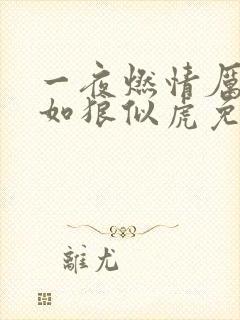 一夜燃情厉
如狼似虎免
離尤